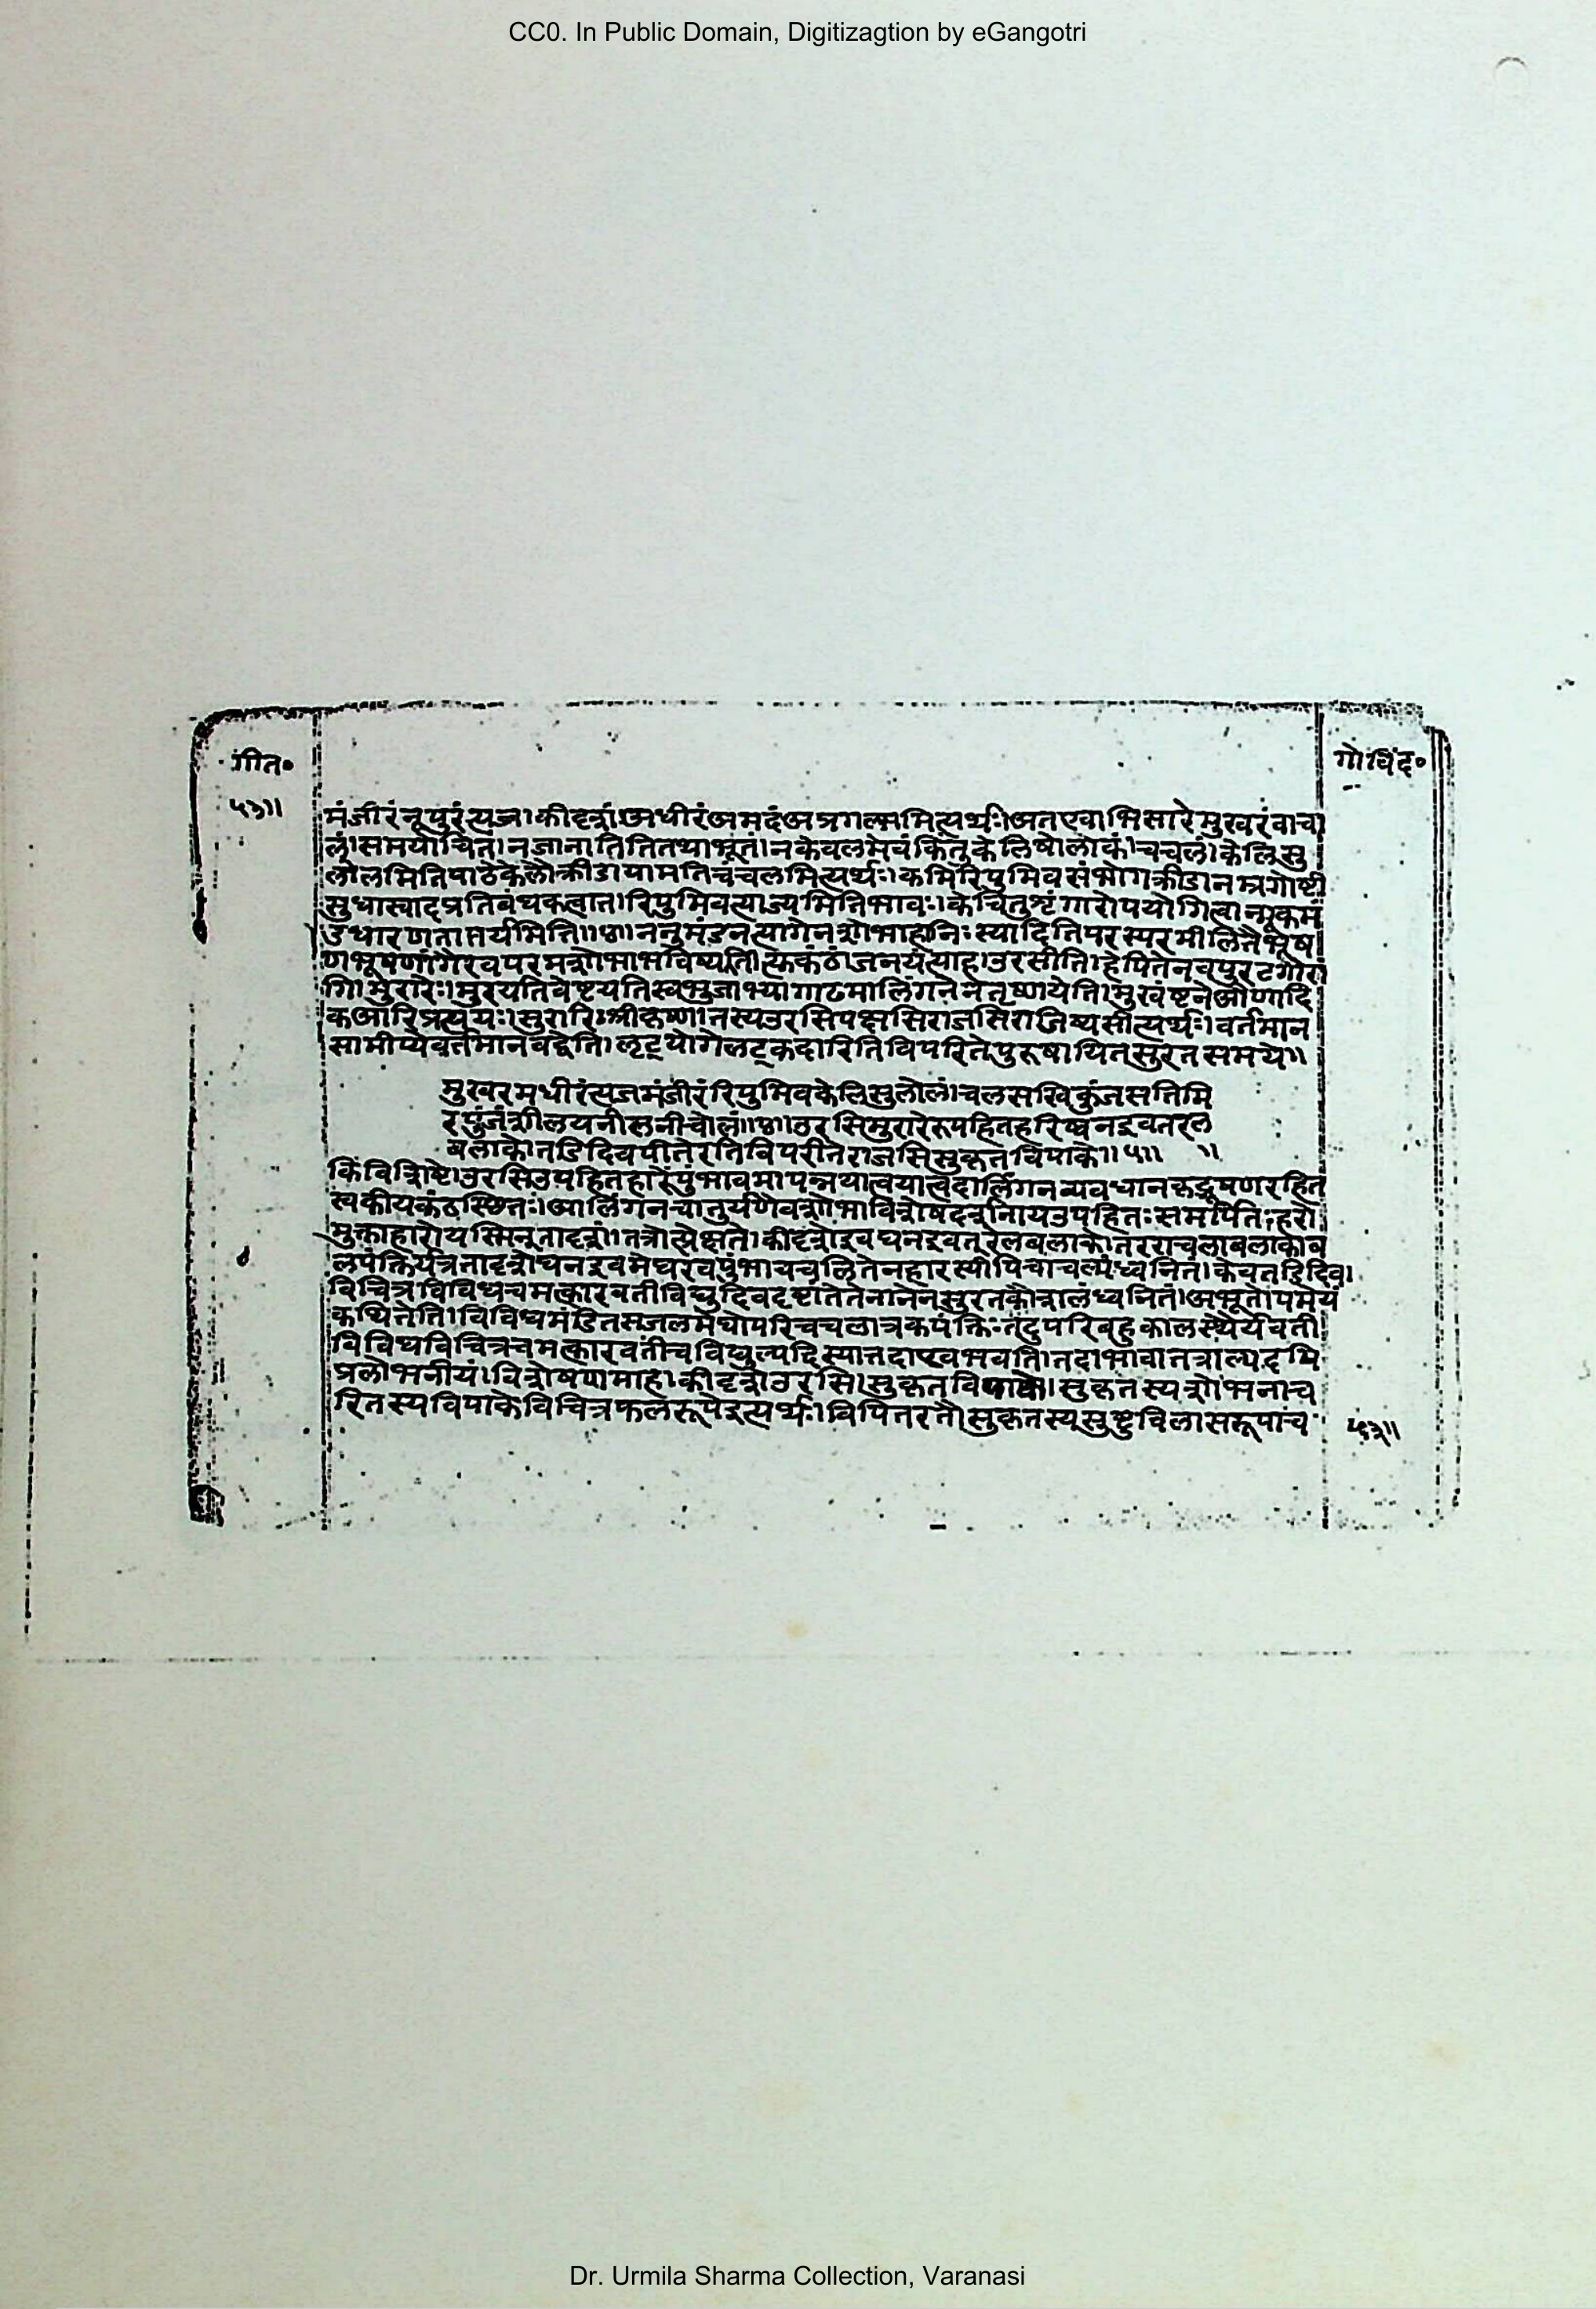 CC0. In Public Domain, Digitizagtion by eGangotri
गीत॰
गोविंद॰
५३॥
मंजीरंनूपुरंत्यज।कीदृशं।अधीरंअमदंअप्रगल्भमित्यर्थः।अतएवाभिसारेमुखरंवाचा
लं।समयोचितं।नजानातितितथाभूतं।नकेवलमेवंकिंतुकेलिषोलोकं।चंचलं।केलिसु
लोलमितिपाठेकेलौक्रीडायामतिचंचलमित्यर्थः।कमिरिपुमिवसंभोगक्रीडानम्रगोष्टी
सुधास्वादप्रतिबंधकत्वात।रिपुमिवत्याज्यमितिभावः।केचितुशृंगारोपयोगित्वान्मूकमं
उधारणतात्पर्यमिति।।छ।ननुमंडनत्यागेनशोभाहानिःस्यादितिपरस्परमीलितैर्भूष
णभूषणांगैरेवपरमशोभाभविष्यति।त्कंठांजनयंत्याह।उरसीति।हेपितेनवपुरटगौरां
गि।मुरारेः।मुरयतिवेष्टयतिस्वभुजाभ्यांगाढमालिंगनेनेतृष्णायेति।मुरवेष्टनेऔणादि
कआरिप्रत्ययः।मुरारिःश्रीकृष्ण।तस्यउरसिवक्षसिराजसिराजिष्यसीत्यर्थः।वर्तमान
सामीप्येवर्तमानवद्वेति।लृट्योगेलट्कदारितिविपरितेपुरूषायितसुरतसमये॥
मुखरमधीरंत्यजमंजीरंरिपुमिवकेलिसुलोलं।चलसखिकुंजसतिमि
रपुंजंशीलयनीलनीचोलं॥छ॥उरसिमुरारेरुपहितहारेघनइवतरल
बलाके।तडिदिवपीतेरतिविपरीतेराजसिसुकृतविपाके॥५॥ ॥
किंविशिष्टे।उरसिउपहितहारेपुंभावमापन्नयात्वयात्वदालिंगनव्यवधानकृद्भूषणरहित
स्वकीयकंठस्थितः।आलिंगनचातुर्येणैवशोभाविशेषदर्शनायउपहितःसमर्पितःहरो
मुक्ताहारोयस्मिन्तादृशं।तत्रोत्प्रेक्षते।कीदृशेइवघनइवतरलबलाके।तरराचलाबलाकाब
लपंक्तिर्यत्रतादृशेघनइवमेघेरवपुंभावचलितेनहारस्यापिचांचल्यंध्वनितं।केवतडिदिव।
विचित्रविविधचमत्कारवतीविद्युदिवदृष्टांतेतेनानेनसुरतकौशलंध्वनितं।अभूतोपमेयं
कथितेति।विविधमंडितसजलमेघोपरिचंचलाशक्रपंक्तिःतदुपरिबहुकालस्थैर्यवती
विविधविचित्रचमत्कारवतीचविद्युत्यदिस्यात्तदाएवभवति।तदाभावातत्राल्यदमि
प्रलोभनीयं।विशेषणमाह।कीदृशेउरसि।सुकृतविपाके।सुकृतस्यशोभनाच
रितस्यविपाकेविचित्रफलरूपेइत्यर्थः।विपितरतौसुकृतस्यसुष्टुविलासरूपाच
५३॥
Dr. Urmila Sharma Collection, Varanasi